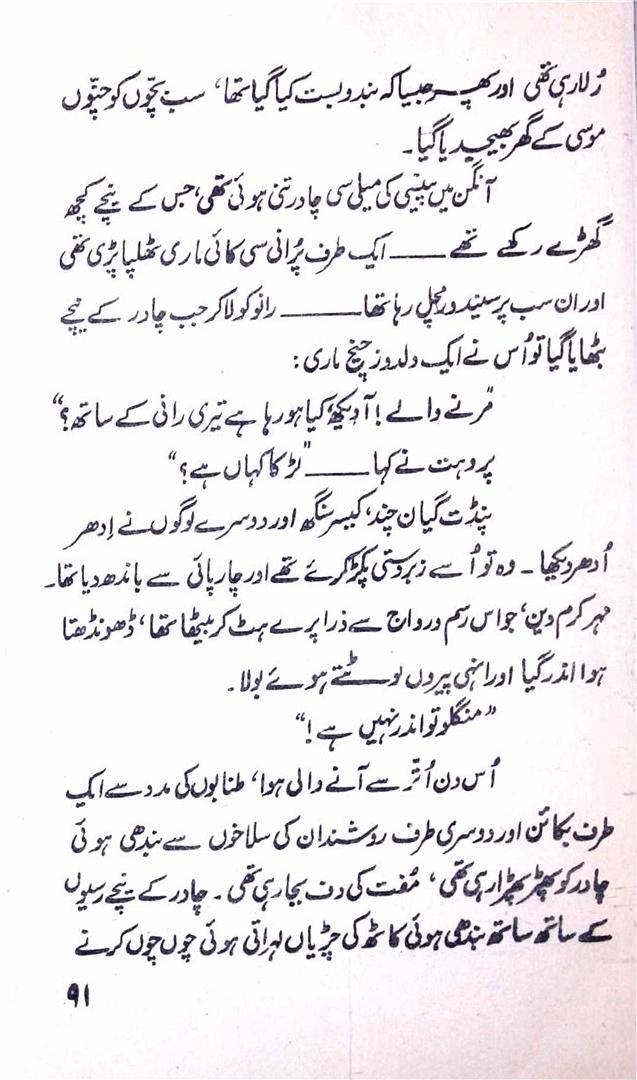 رُلا رہی تھی اور پھر جیسا کہ بندوبست کیا گیا تھا، سب بچّوں کو چنّوں
موسی کے گھر بھیجدیا گیا۔
آنگن میں پیسی کی میلی سی چادر تنی ہوئی تھی، جس کے نیچے کچھ
گھڑے رکھے تھے ——— ایک طرف پُرانی سی کائی ماری ٹھلیا پڑی تھی
اور ان سب پر سیندور مچل رہا تھا ——— رانو کو لا کر جب چادر کے نیچے
بٹھایا گیا تو اُس نے ایک دلدوز چیخ ماری :
"مرنے والے ! آ دیکھ، کیا ہو رہا ہے تیری رانی کے ساتھ ؟"
پروہت نے کہا ——— "لڑکا کہاں ہے ؟"
پنڈت گیان چند، کیسر سنگھ اور دوسرے لوگوں نے اِدھر
اُدھر دیکھا ۔ وہ تو اُسے زبردستی پکڑ کر لئے تھے اور چارپائی سے باندھ دیا تھا۔
مہر کرم دین، جو اس رسم و رواج سے ذرا پرے ہٹ کر بیٹھا تھا، ڈھونڈھتا
ہوا اندر گیا اور انہی پیروں لوٹتے ہوئے بولا۔
"منگلو تو اندر نہیں ہے !"
اُس دن اُتّر سے آنے والی ہوا، طنابوں کی مدد سے ایک
طرف بکائن اور دوسری طرف روشندان کی سلاخوں سے بندھی ہوئی
چادر کو پھڑپھڑا رہی تھی، مُفت کی دف بجا رہی تھی ۔ چادر کے نیچے رسیوں
کے ساتھ ساتھ بندھی ہوئی کاٹھ کی چڑیاں لہراتی ہوئی چوں چوں کرنے
۹۱